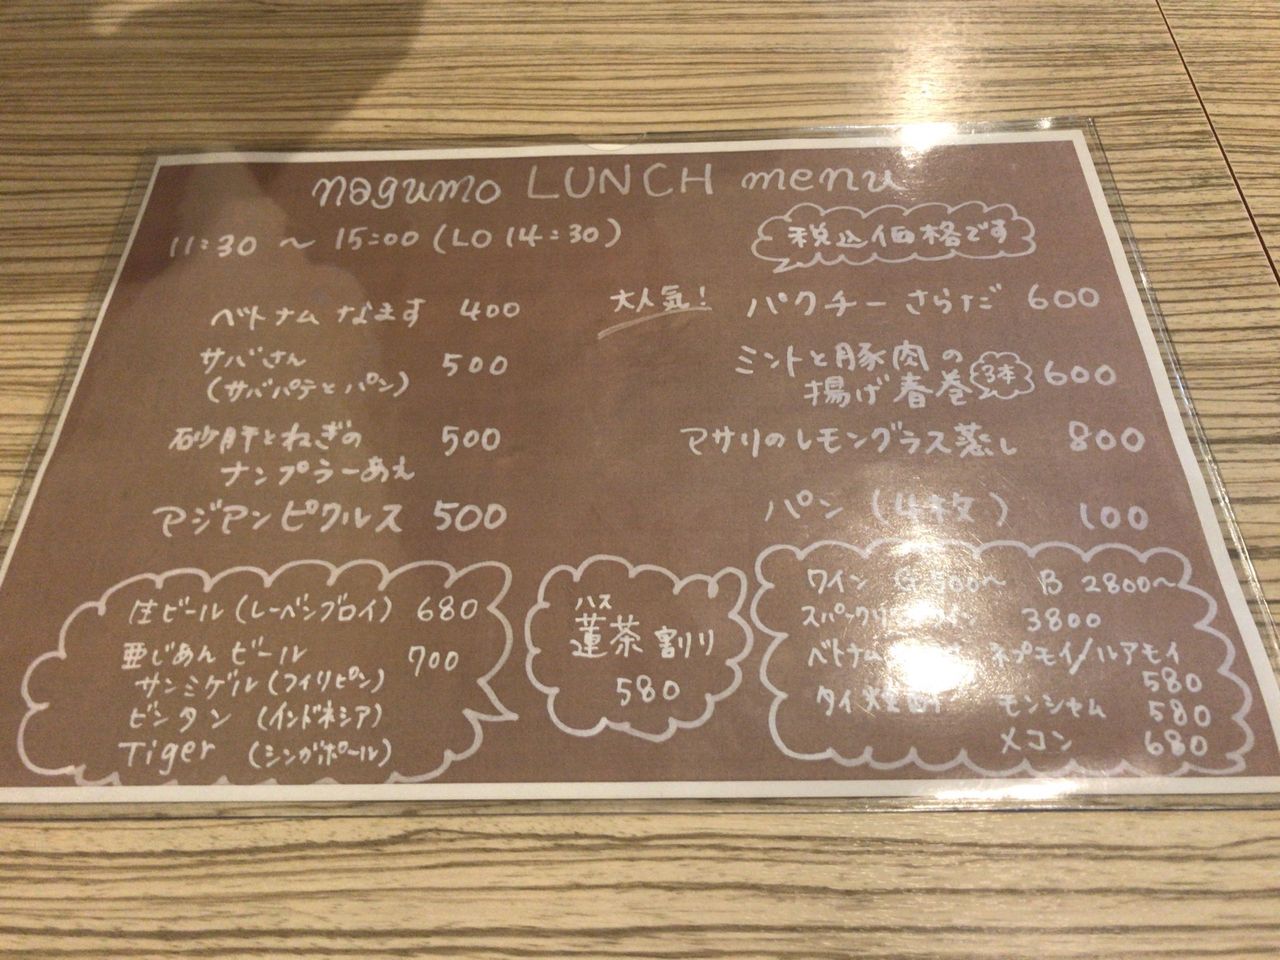 nagumo LUNCH menu
11:30 ～ 15:00 (LO 14:30)
税込価格です
ベトナムなます 400
サバさん
(サバパテとパン) 500
砂肝とねぎの
ナンプラーあえ 500
アジアンピクルス 500
大人気! パクチーさらだ 600
ミントと豚肉の
揚げ春巻 3本 600
アサリのレモングラス蒸し 800
パン (4枚) 100
生ビール (レーベンブロイ) 680
亜じあんビール 700
サンミゲル (フィリピン)
ビンタン (インドネシア)
Tiger (シンガポール)
ハス
蓮茶割り
580
ワイン G 500～ B 2800～
3800
ベトナム ネプモイ/ルアモイ
580
タイ焼酎 モンシャム 580
メコン 680